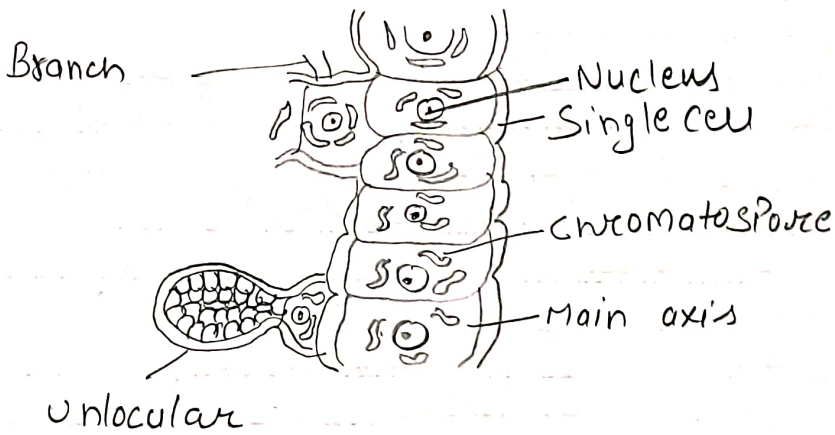 Branch
Nucleus
Single cell
Chromatospore
Main axis
Unlocular